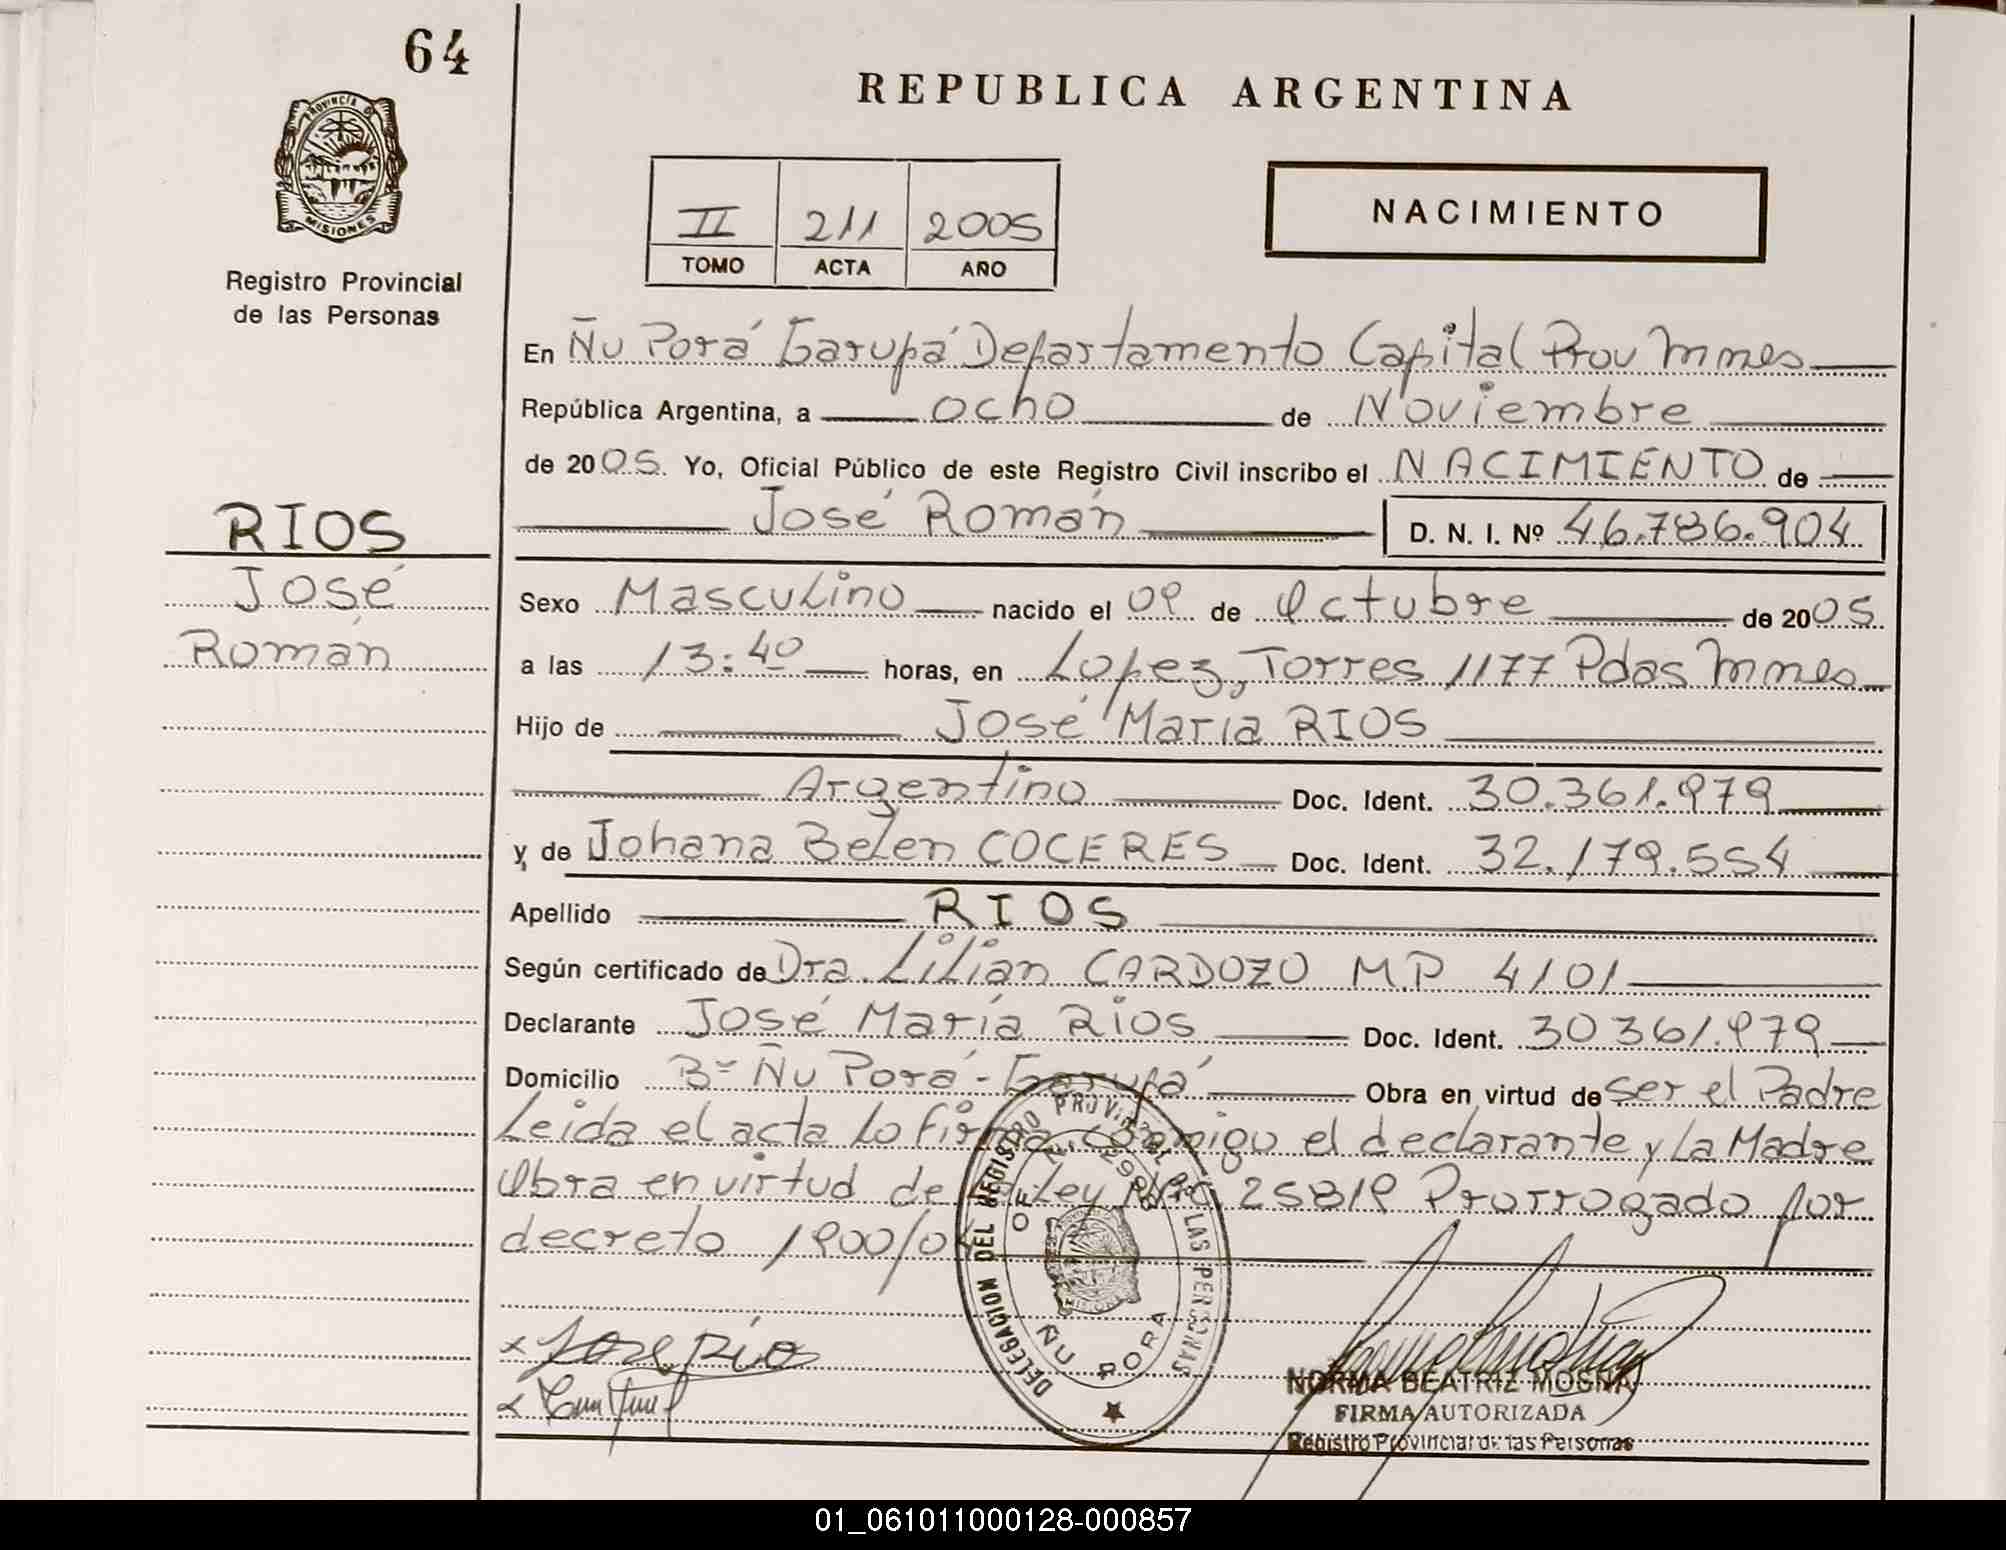 64
PROVINCIA D
MISIONES
Registro Provincial
de las Personas
REPUBLICA ARGENTINA
II 211 2005
TOMO ACTA AÑO
NACIMIENTO
En Ñu Porá Garupá Departamento Capital Prov Mnes
República Argentina, a ocho de Noviembre
de 2005. Yo, Oficial Público de este Registro Civil inscribo el NACIMIENTO de
José Román D. N. I. Nº 46.786.904
RIOS
José
Román
Sexo Masculino nacido el 09 de Octubre de 2005
a las 13:40 horas, en Lopez, Torres 1177 Pdas Mnes
Hijo de José María RIOS
Argentino Doc. Ident. 30.361.979
y, de Johana Belen COCERES Doc. Ident. 32.179.554
Apellido RIOS
Según certificado de Dra. Lilian CARDOZO M.P 4101
Declarante José María Rios Doc. Ident. 30361.979
Domicilio Bº Ñu Porá - Garupá Obra en virtud de ser el Padre
Leida el acta lo firma conmigo el declarante y La Madre
Obra en virtud de Ley 25819 Prorrogado por
decreto 1900/0
DELEGACION DEL REGISTRO PROVINCIAL DE LAS PERSONAS
ÑU PORA
x Jose Rios
NORMA BEATRIZ MOSNA
FIRMA AUTORIZADA
Registro Provincial de las Personas
01_061011000128-000857